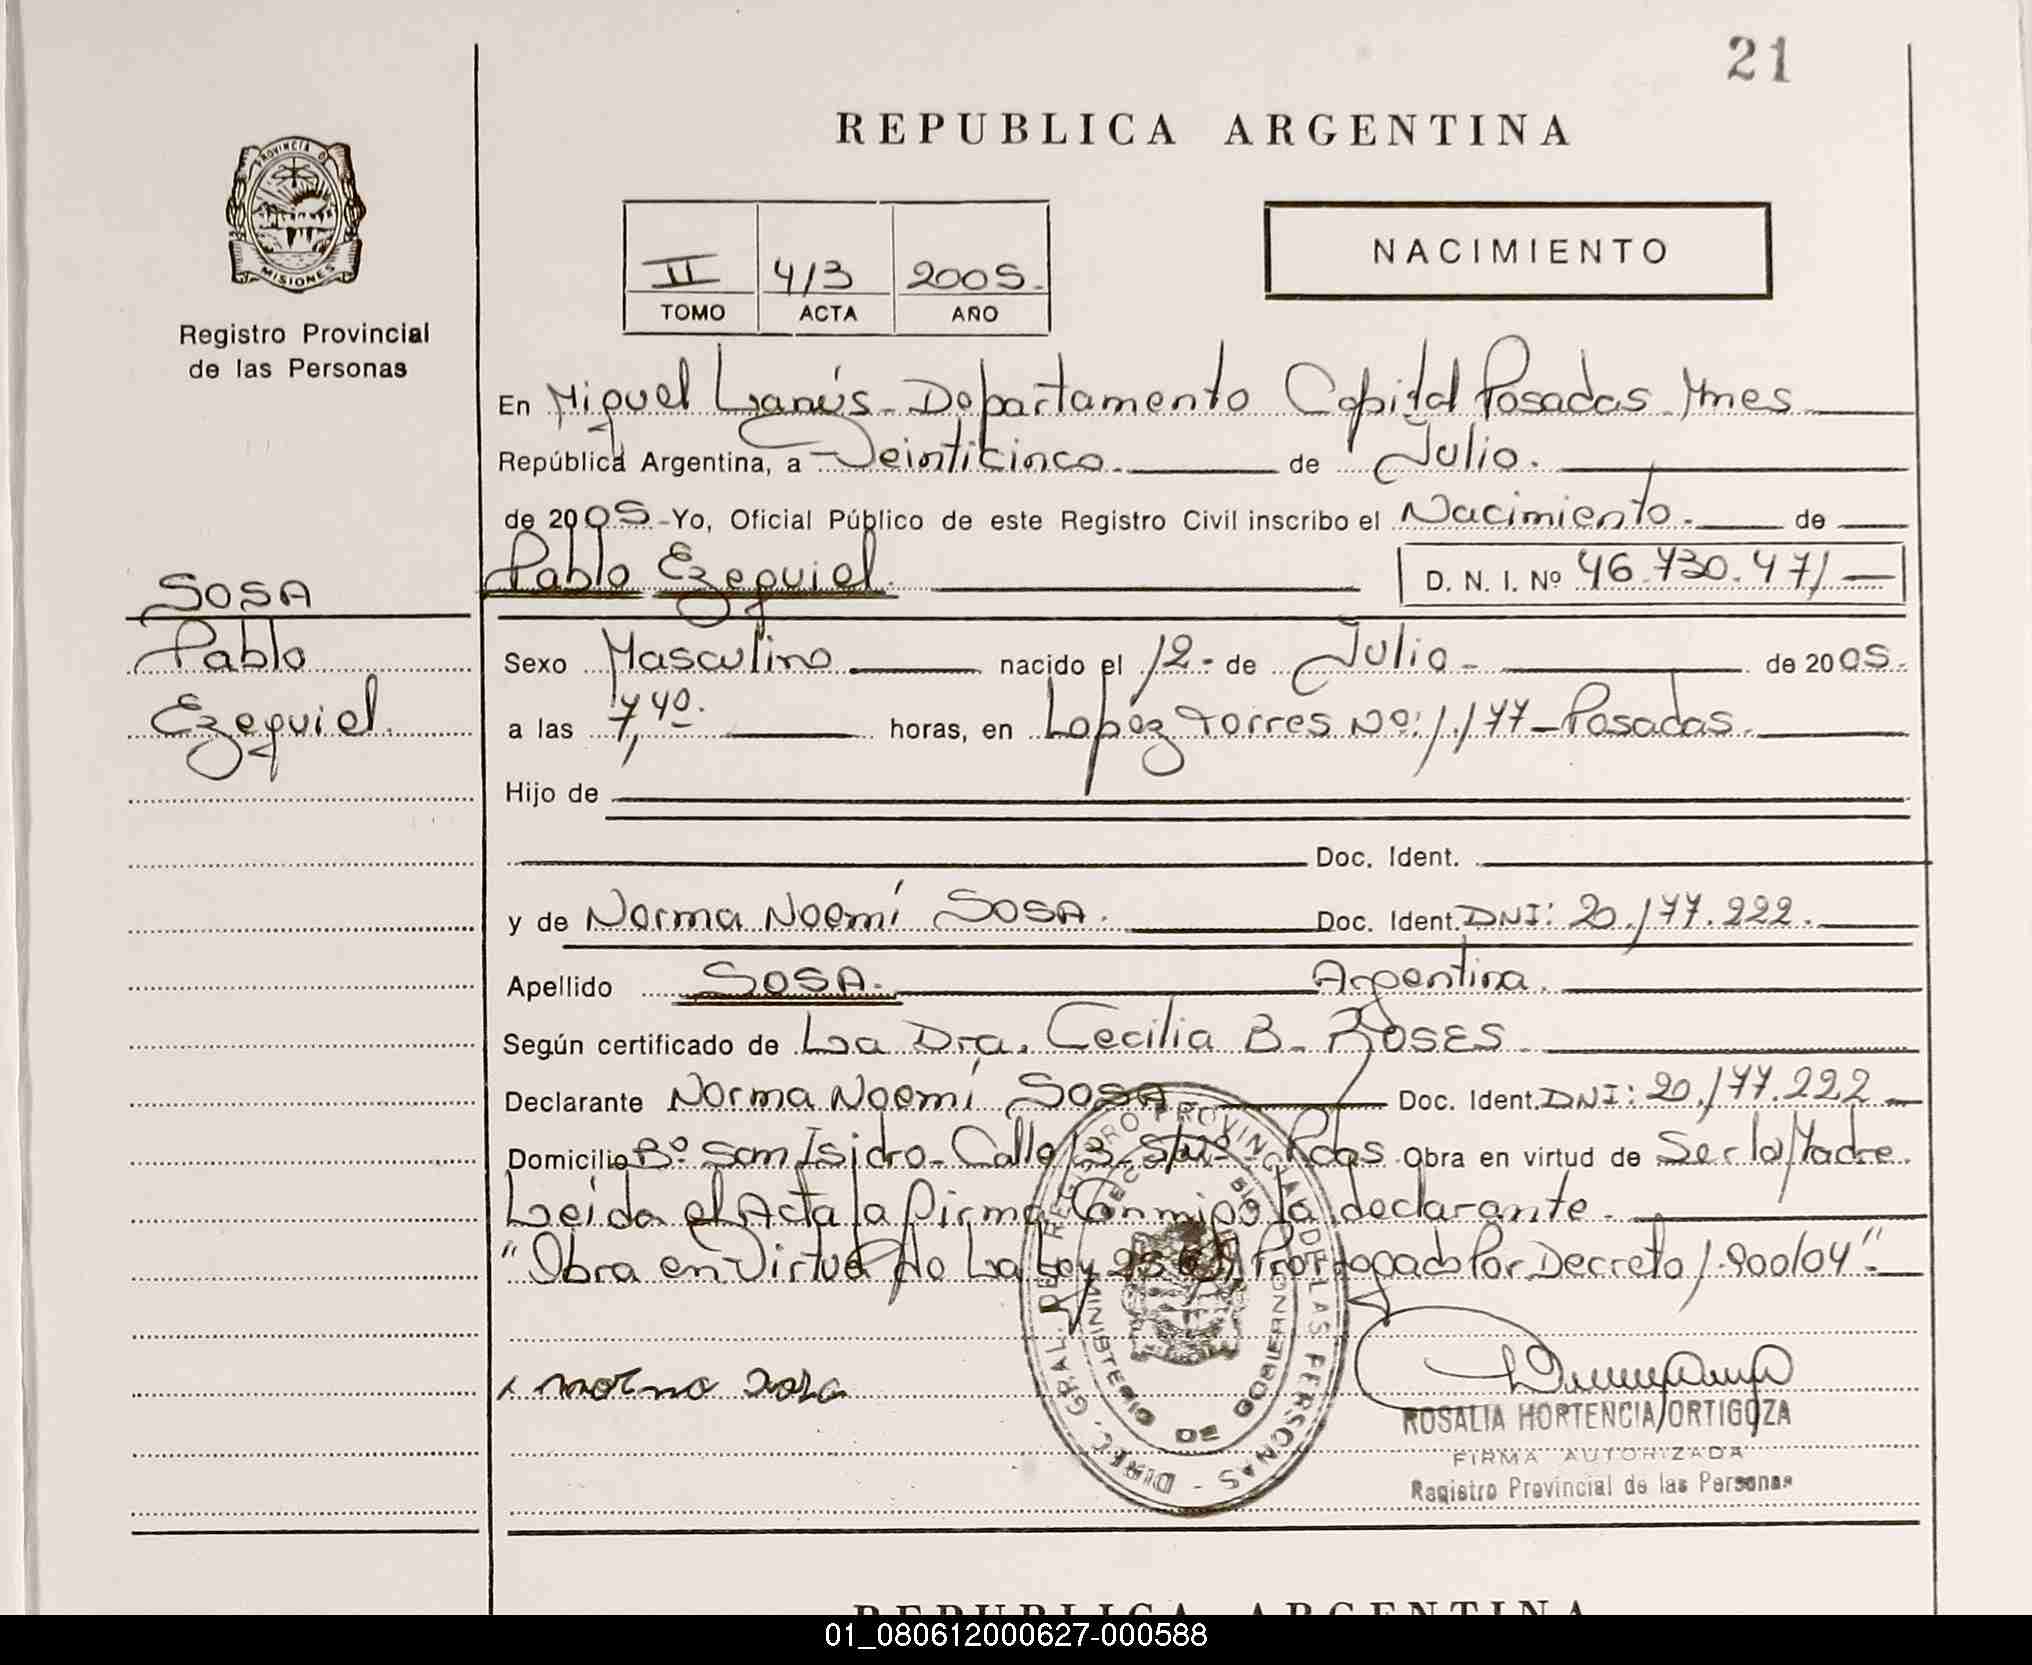 21
REPUBLICA ARGENTINA
PROVINCIA D
MISIONES
Registro Provincial
de las Personas
II 413 2005.
TOMO ACTA AÑO
NACIMIENTO
En Miguel Lanús - Departamento Capital Posadas Mnes
República Argentina, a Veinticinco. de Julio.
de 2005 - Yo, Oficial Público de este Registro Civil inscribo el Nacimiento. de
Pablo Ezequiel. D. N. I. Nº 46.730.471
SOSA
Pablo
Ezequiel.
Sexo Masculino nacido el 12 - de Julio - de 2005.
a las 7,40. horas, en Lopéz Torres Nº: 1.177 - Posadas.
Hijo de
Doc. Ident.
y de Norma Noemí SOSA. Doc. Ident. DNI: 20.177.222.
Apellido SOSA. Argentina.
Según certificado de La Dra. Cecilia B. ROSES
Declarante Norma Noemí SOSA Doc. Ident. DNI: 20.177.222
Domicilio Bº San Isidro - Calle 13 - S/Nº - Pdas Obra en virtud de Ser la Madre.
Leída el Acta la firma Conmigo la declarante.
"Obra en Virtud de La Ley Prorrogado Por Decreto 1.900/04".
norma sosa
DIREC. GRAL. DEL REGISTRO PROVINCIAL DE LAS PERSONAS
MINISTERIO DE GOBIERNO
ROSALIA HORTENCIA ORTIGOZA
FIRMA AUTORIZADA
Registro Provincial de las Personas
REPUBLICA ARGENTINA
01_080612000627-000588